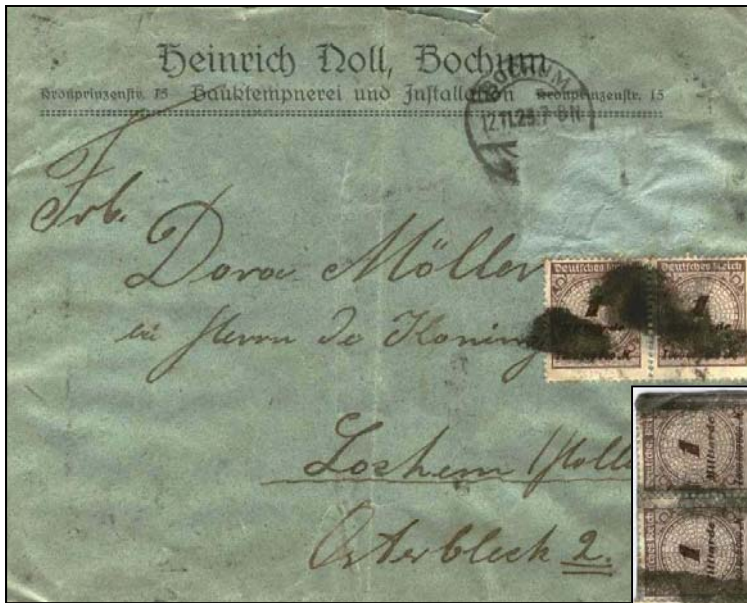 Heinrich Noll, Bochum
Kronprinzenstr. 15 Bauklempnerei und Installation Kronprinzenstr. 15
BOCHUM
12.11.23.7-8N
Frl.
Dora Möller
bei Herrn de Koning
Lochem (Holl
Osterbleek 2.
Deutsches Reich
Deutsches Reich
1
1
1
Milliarde
1
Milliarde